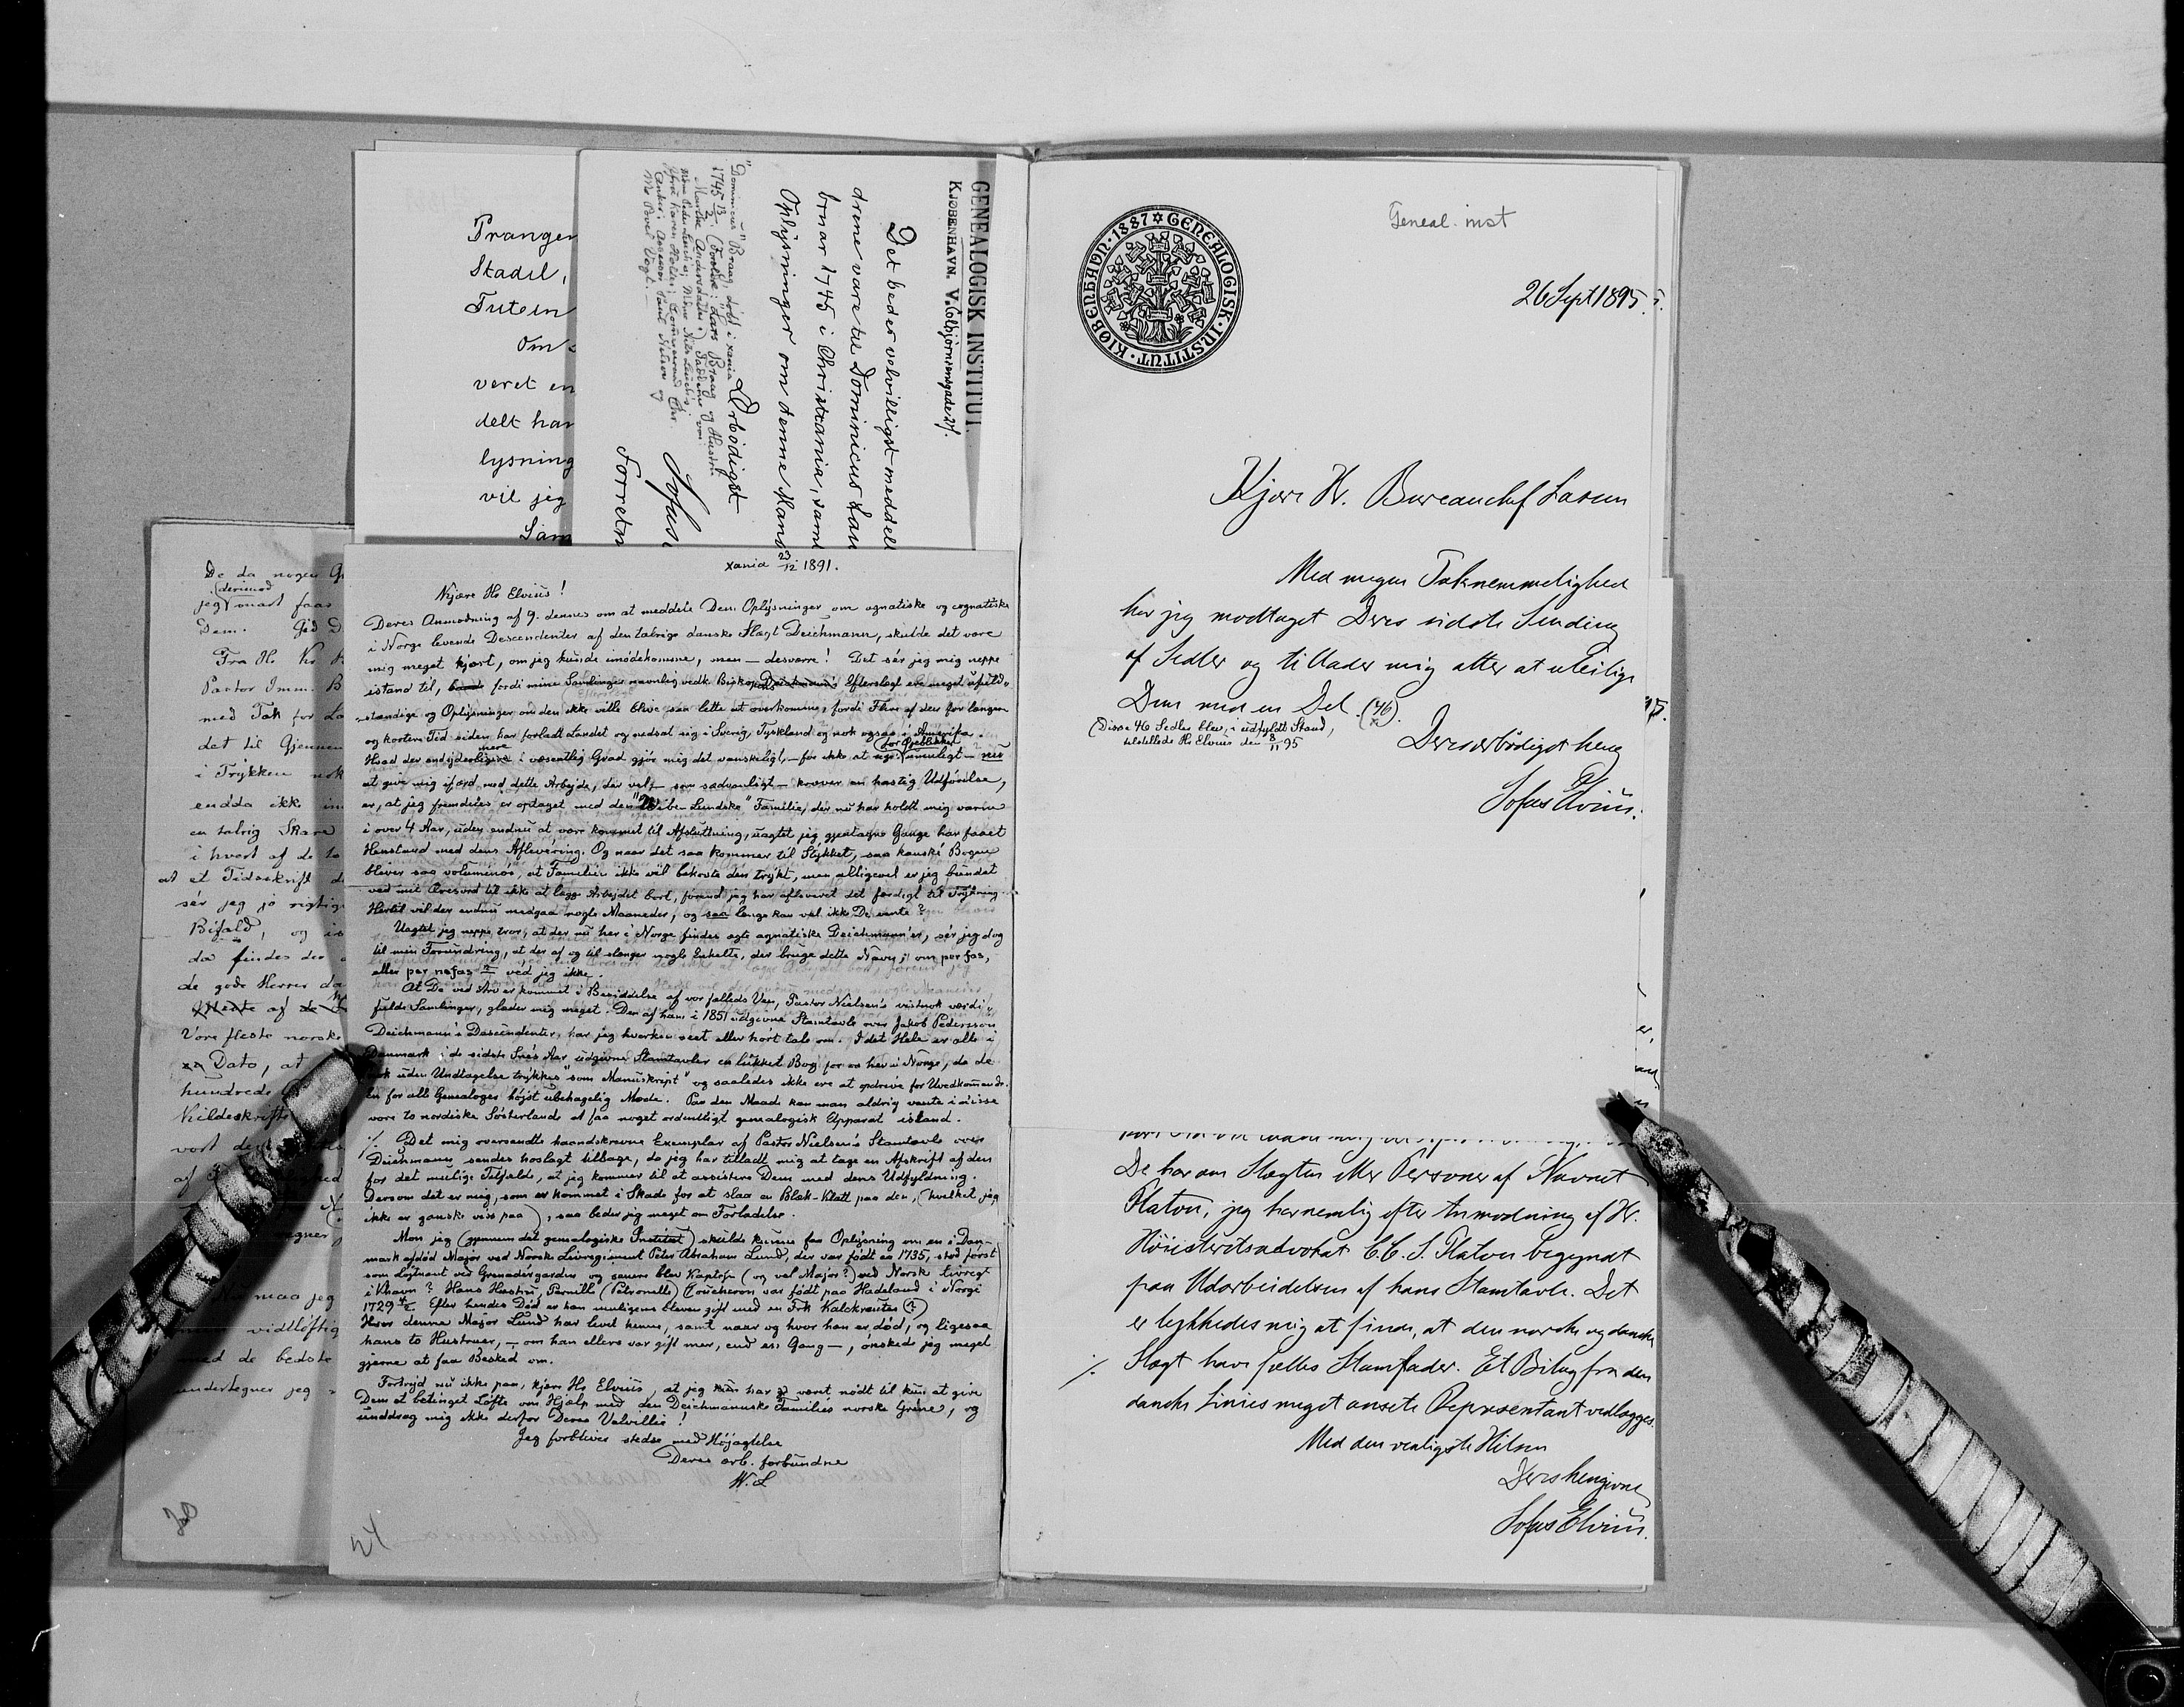 Pranger
Stadil,
Tutein
Om
veret en
delt har
lysning
vil jeg
Sam
GENEALOGISK INSTITUT.
KJØBENHAVN. V. Colbjørnsensgade 27.
Det bedes velvilligst meddelt
drene vare til Dominicus Lau
bruar 1745 i Christiania, saml
Oplysninger om denne Mand
Ærbødigst
Sofus
Forretn
"Dominicus" Braag, død i Xania
1745 13/2. (Forældre: Lars Braag og Hustru
Marthe Andersdatter.) Faddere var
De da nogen
(derimod
jeg snart faar
Dem. Gid D
Fra Hr.
Pastor Imm. B
med Tak for La
det til Gjennem
i Trykken nok
endda ikke
en talrig Skare
i hvert af de to
at et Tidsskrift
sér jeg jo rigtig
Bifald, og
da findes der
de gode Herrer
af
Vore fleste norske
Dato, at
hundrede
Kildeskrift
vort
af
maa jeg
vidtløftig
med de bedste
undertegner jeg
20
Xania 21/12 1891.
Kjære Hr Elvius!
Deres Anmodning af 9. dennes om at meddele Dem Oplysninger om agnatiske og cognatiske
i Norge levende Descendenter af den talrige danske Slægt Deichmann, skulde det være
mig meget kjært, om jeg kunde imødekomme, men — desværre! Det sér jeg mig neppe
istand til, fordi mine Samlinger navnlig vedk. Biskop Deichmann's Efterslægt ere meget ufuld-
stændige og Oplysninger om den ikke ville blive saa lette at overkomme, fordi Flere af den for længere
og kortere Tid siden har forladt Landet og nedsat sig i Sverig, Tyskland og nok ogsaa i Amerika.
Hvad der endyderligere mere i væsentlig Grad gjør mig det vanskeligt, — for ikke at sige (for Øjeblikket) umuligt — nu
at give mig ifærd med dette Arbejde, der vel, — som sædvanligt — kræver en hastig Udførelse,
er, at jeg fremdeles er optaget med den "Wibe-Lundske" Familie, der nu har holdt mig varm
i over 4 Aar, uden endnu at være kommet til Afsluttning, uagtet jeg gjentagne Gange har faaet
Henstand med dens Aflevering. Og naar det saa kommer til Stykket, saa kanské Bogen
bliver saa voluminøs, at Familien ikke vil bekoste den trykt, men alligevel er jeg bundet
ved mit Æresord til ikke at lægge Arbejdet bort, førend jeg har afleveret det færdigt til Trykning.
Hertil vil der endnu medgaa nogle Maaneder, og saa længe kan vel ikke De vente?
Uagtet jeg neppe tror, at der nu her i Norge findes ægte agnatiske Deichmann'er, sér jeg dog
til min Forundring, at der af og til slænger nogle Enkelte, der bruge dette Navn; om per fas,
eller per nefas? ved jeg ikke.
At De ved Arv er kommet i Besiddelse af vor fælleds Ven, Pastor Nielsen's vistnok værdi-
fulde Samlinger, glæder mig meget. Den af ham i 1851 udgivne Stamtavle over Jakob Pederssøn
Deichmann's Descendenter, har jeg hverken seet eller hørt tale om. I det Hele er alle i
Danmark i de sidste Snés Aar udgivne Stamtavler en lukket Bog for os her i Norge, da de
nok uden Undtagelse trykkes "som Manuskript" og saaledes ikke ere at opdrive for Uvedkommende.
En for alle Genealoger højst ubehagelig Mode. Paa den Maade kan man aldrig vente i disse
vore to nordiske Søsterlande at faa noget ordentligt genealogisk Apparat istand.
./. Det mig oversendte haandskrevne Exemplar af Pastor Nielsen's Stamtavle over
Deichmann sendes hoslagt tilbage, da jeg har tilladt mig at tage en Afskrift af den
for det mulige Tilfælde, at jeg kommer til at assistere Dem med dens Udfyldning.
Dersom det er mig, som er kommet i Skade for at slaa en Blæk-Klatt paa den, (hvilket jeg
ikke er ganske viss paa), saa beder jeg meget om Forladelse.
Mon jeg (gjennem det genealogiske Institut) skulde kunne faa Oplysning om en i Dan-
mark afdød Major ved Norske Livregiment Peter Abraham Lund, der var født ca 1735, stod først
som Løjtnant ved Grenadérgarden og senere blev Kaptejn (og vel Major?) ved Norsk Livregt
i Khavn? Hans Hustru, Pernille (Petronelle) Coucheron var født paa Hadeland i Norge
1729. Efter hendes Død er han muligens bleven gift med en Frk Kalckreuter (?)
Hvor denne Major Lund har levet henne, samt naar og hvor han er død, og ligesaa
hans to Hustruer, — om han ellers var gift mer, end én Gang —, ønskede jeg meget
gjerne at faa Besked om.
Fortryd nu ikke paa, kjære Hr Elvius, at jeg har været nødt til kun at give
Dem et betinget Løfte om Hjælp med den Deichmannske Familiés norske Grene, og
unddrag mig ikke derfor Deres Velvillie!
Jeg forbliver stedse med Højagtelse
Deres ærb. forbundne
W. L
24
Geneal. inst
GENEALOGISK · INSTITUT · KJØBENHAVN · 1887
26 Sept 1895.
Kjære Hr. Bureauchef Lassen
Med megen Taknemmelighed
har jeg modtaget Deres sidste Sending
af Sedler og tillader mig atter at uleilige
Dem med en Del. (46).
(Disse 46 Sedler blev, i udfyldt Stand,
tilstillede Hr Elvius den 8/11 95
Deres ærbødigst heng
Sofus Elvius.
De har om Slægten eller Personer af Navnet
Platou, jeg har nemlig efter Anmodning af Hr.
Høiesteretsadvokat C.C.S. Platou begyndt
paa Udarbeidelsen af hans Stamtavle. Det
er lykkedes mig at finde, at den norske og danske
./. Slægt have fælles Stamfader. Et Bilag fra den
danske Linies meget ansete Repræsentant vedlægges.
Med den venligste Hilsen
Deres hengivne
Sofus Elvius.